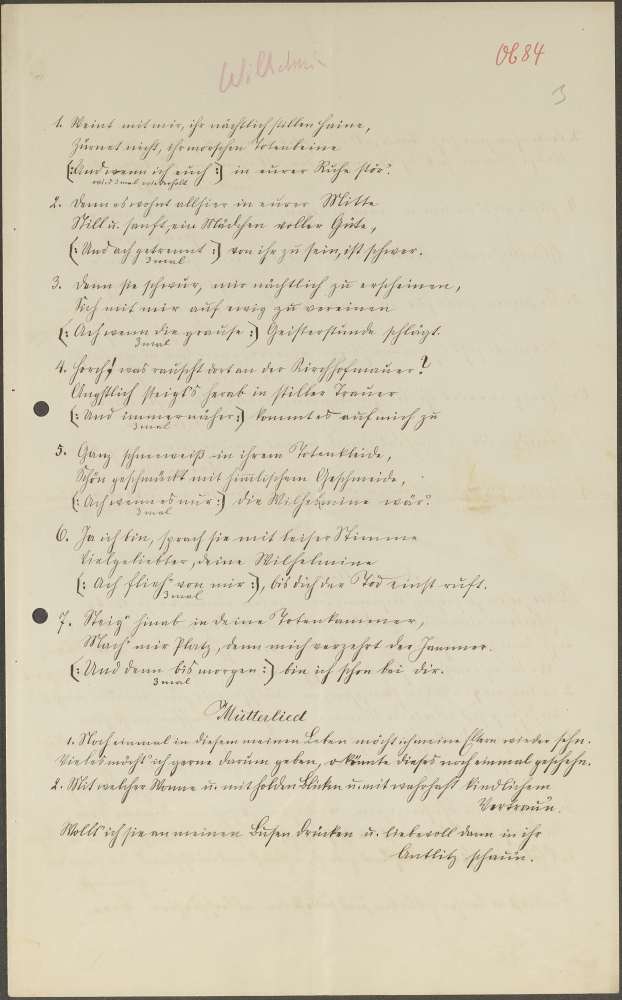 Wilhelmin
O684
3
1. Weint mit mir, ihr nächtlich stillen Haine,
Zürnet nicht, ihr morschen Totenbeine
(: Und wenn ich euch :) in eurer Ruhe stör'.
wird 3 mal wiederholt
2. Denn es wohnt allhier in eurer Mitte
Still u. sanft, ein Mädchen voller Güte,
(: Und ach getrennt :) von ihr zu sein, ist schwer.
3 mal
3. Denn sie schwur, mir nächtlich zu erscheinen,
Sich mit mir auf ewig zu vereinen
(: Ach wenn die grause :) Geisterstunde schlägt.
3 mal
4. Horch! was rauscht dort an der Kirchhofmauer?
Ängstlich steigts herab in stiller Trauer
(: Und immer näher :) kommt es auf mich zu
3 mal
5. Ganz schneeweiß in ihrem Totenkleide,
Schön geschmückt mit himlischem Geschmeide,
(: Ach wenn es nur :) die Wilhelmine wär'.
3 mal
6. Ja ich bin, sprach sie mit leiser Stimme
Vielgeliebter, deine Wilhelmine
(: Ach flieh' von mir :), bis dich der Tod einst ruft.
3 mal
7. Steig' hinab in deine Totenkammer,
Mach' mir Platz, denn mich verzehrt der Jammer.
(: Und denn bis morgen :) bin ich schon bei dir.
3 mal
Mutterlied
1. Noch einmal in diesem meinen Leben möcht ich meine Eltern wieder sehn.
Vieles möcht' ich gerne darum geben, o könnte dieses noch einmal geschehn.
2. Mit welcher Wonne u. mit holden Blicken u. mit wahrhaft kindlichem
Vertrau'n.
Wollt' ich sie an meinen Busen drücken u. liebevoll dann in ihr
Antlitz schau'n.